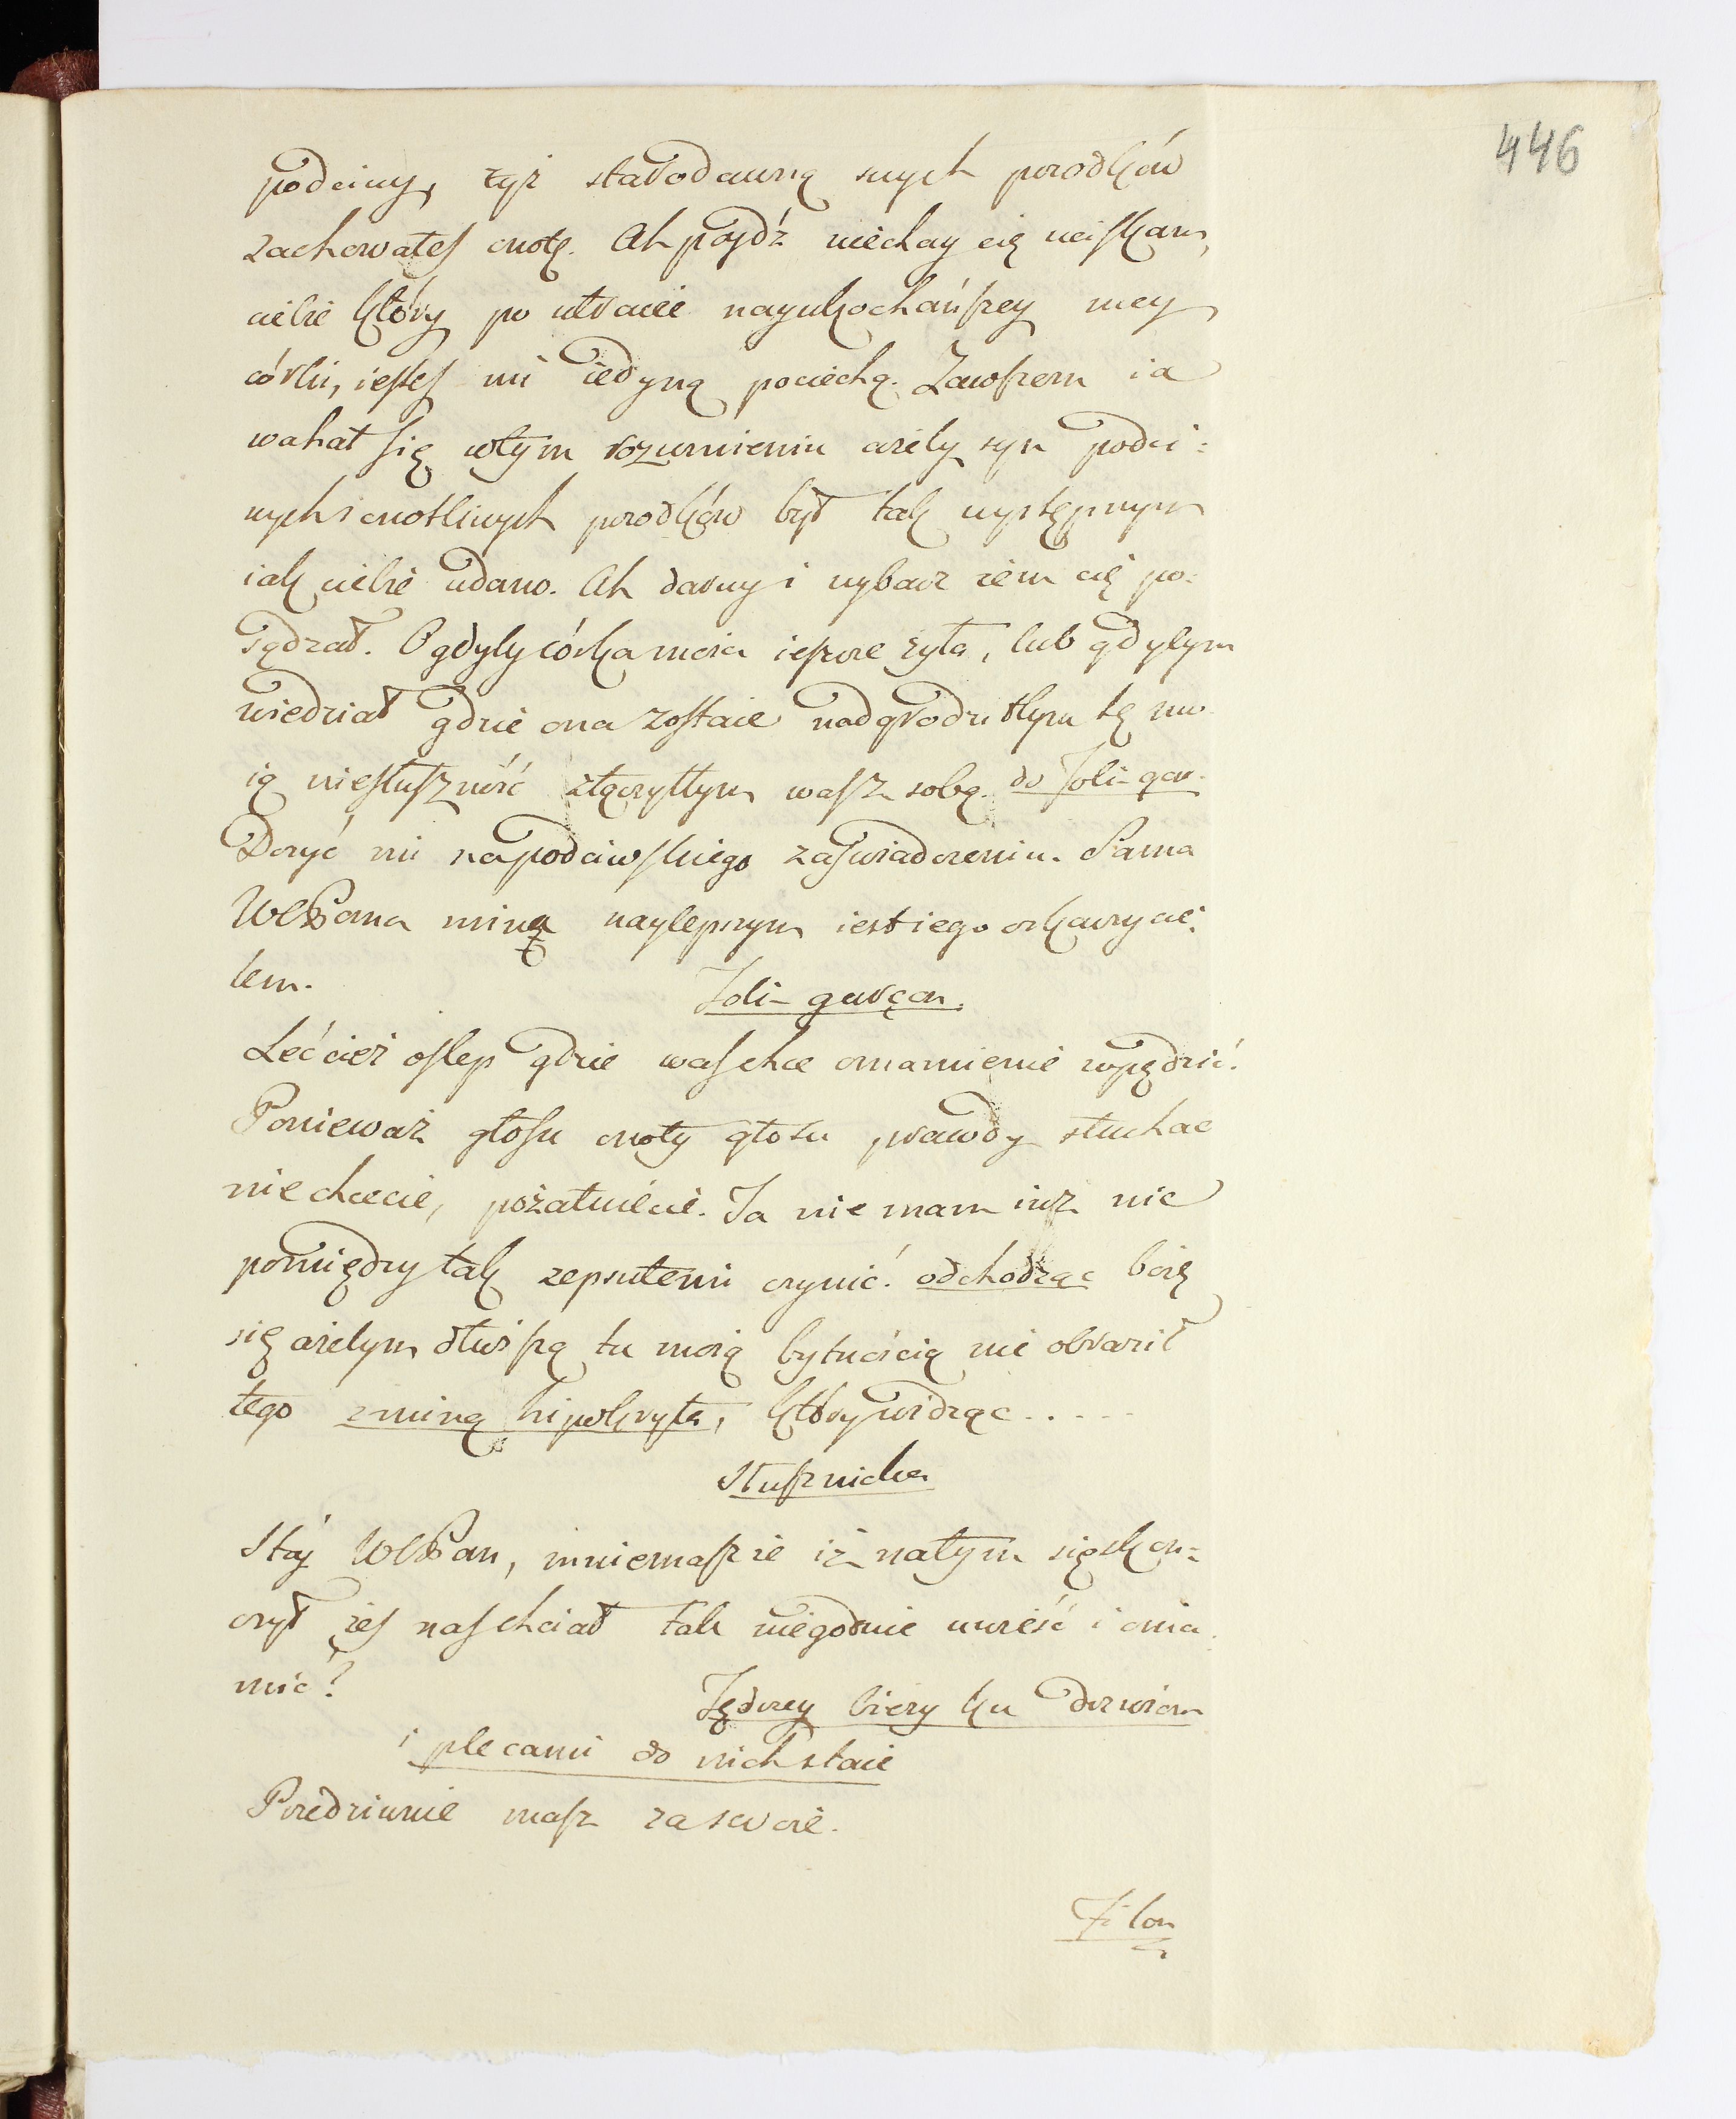 446
podciwy, tyś starodawną swych przodków
zachowałeś cnotę. Ah pójdź niechay cię uciskam,
ciebie który po utracie nayukochańszey mey
córki, iesteś mi iedyną pociechą. Zawszem ia
wahał się wtym rozumieniu ażeby syn podci:
wych i cnotliwych przodków był tak występnym
iak ciebie udano. Ah daruy i wybacz żem cię po:
sądzał. O gdyby córka moia ieszcze żyła, lub gdybym
wiedział gdzie ona zostaie nadgrodziłbym tę mo
ią niesłuszność złączyłbym was z sobą. do Joli-gar.
Dosyć mi na podciwskiego zaświadczeniu. Sama
WCPana mina naylepszym iest iego oskarżycie:
lem.
Joli-garçon.
Lećcież oślep gdzie was chce omamienie wpędzić.
Ponieważ głosu cnoty głosu prawdy słuchac
nie chcecie, pożałuiecie. Ja nie mam iuż nic
pomiędzy tak zepsutemi czynić. odchodząc boię
się ażebym dłuższą tu moią bytnością nie obraził
tego z miną hipokryta, który widząc.....
Słusznicka
Stój WCPan, mniemasz że iż natym się skoń-
czył żeś nas chciał tak niegodnie uwieść i oma
mić?
Jędrzey bieży ku drzwiom
i plecami do nich staie
Poredziwnie masz za swoie.
Filon